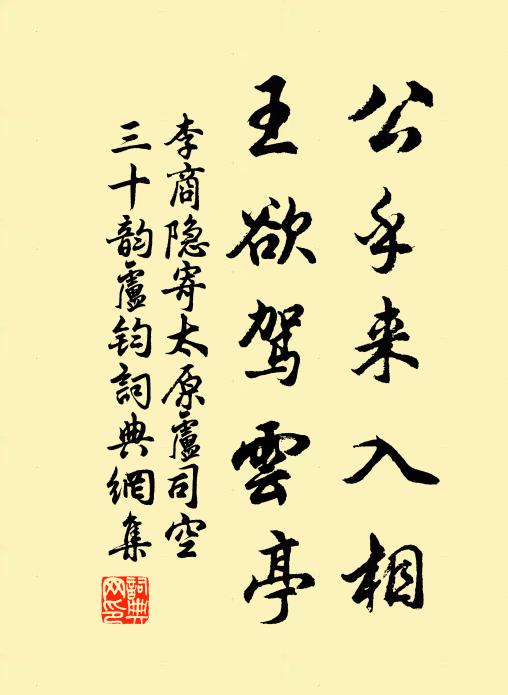 公乎来入相
王欲駕雲亭
李商隐寄太原盧司空
三十韵盧钧詞典網集
詞典网印